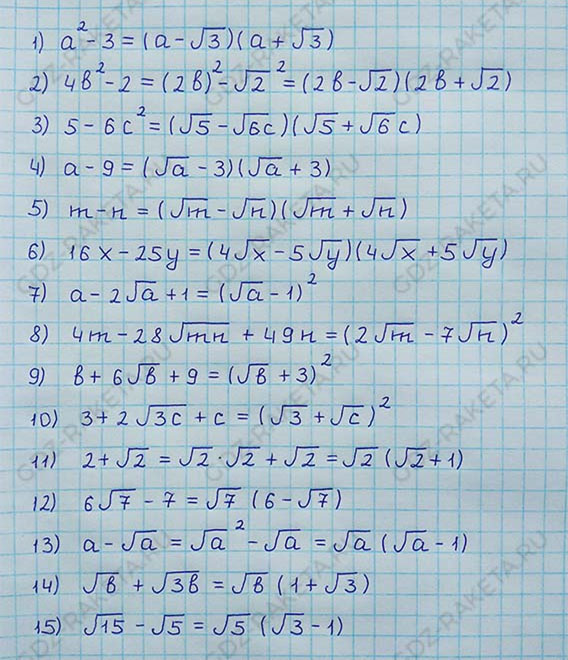 1) a² - 3 = (a - √3)(a + √3)
2) 4b² - 2 = (2b)² - √2² = (2b - √2)(2b + √2)
3) 5 - 6c² = (√5 - √6c)(√5 + √6 c)
4) a - 9 = (√a - 3)(√a + 3)
5) m - n = (√m - √n)(√m + √n)
6) 16x - 25y = (4√x - 5√y)(4√x + 5√y)
7) a - 2√a + 1 = (√a - 1)²
8) 4m - 28√mn + 49n = (2√m - 7√n)²
9) b + 6√b + 9 = (√b + 3)²
10) 3 + 2√3c + c = (√3 + √c)²
11) 2 + √2 = √2 · √2 + √2 = √2 (√2 + 1)
12) 6√7 - 7 = √7 (6 - √7)
13) a - √a = √a² - √a = √a (√a - 1)
14) √b + √3b = √b (1 + √3)
15) √15 - √5 = √5 (√3 - 1)
GDZ-RAKETA.RU